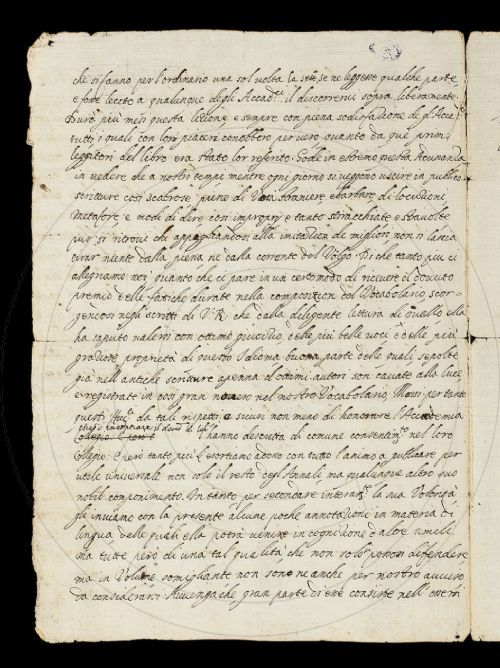 che si fanno per l'ordinario una sol volta la sett.e se ne leggeva qualche parte,
e fosse lecito a qualunque degli Accad.ci il discorrervi sopra liberamente.
Durò più mesi questa lezione e sempre con piena sodisfazione degl'Acca.ci
tutti i quali con lor piacere conobbero per vero quanto da que' primi
leggitori del libro era stato lor referto. Gode in estremo questa Adunanza
in vedere che a nostri tempi mentre ogni giorno si veggono uscire in publico
scritture così scabrose, piene di Voci straniere e barbare di locuzioni
metafore, e modi di dire con improprj e tanto stiracchiate e stravolte
pur si ritrovi chi appigliandosi alla imitazion de' migliori non si lascia
tirar niente dalla piena, ne dalla corrente del Volgo. Di che tanto più ci
allegriamo noi quanto che ci pare in un certo modo di ricevere il dovuto
premio delle fatiche durate nella composizion del Vocabolario scor-
gendosi negli scritti di V.R. che dalla diligente lettura di quello ella
ha saputo valersi con ottimo giudizio delle più belle voci e delle più
graziose proprietà di questo Idioma buona parte delle quali sepolte
già nell'antiche scritture a penna d'ottimi autori son cavate alla luce,
e registrate in con gran novero nel nostro Vocabolario. Mossi per tanto
questi Acc.ci da tali rispetti e sicuri non meno di honorare l'Accademia
l'hanno descritta di comune consentim.to nel loro
Collegio: E però tanto più l'esortiamo adesso con tutto l'animo a publicare per
utile universale non solo il resto degl'Annali, ma qualunque altro suo
nobil componimento. In tanto per secondare interam.te la sua Volontà
gli inviamo con la presente alcune poche annotazioni in materia di
lingua, delle quali ella potrà venire in cognizione d'altre simili.
ma tutte però di una tal qualità, che non solo possono difendere
ma in Volume somigliante non sono ne anche per nostro avviso
da considerarsi. Avvengache gran parte di esse consiste nell'esservi